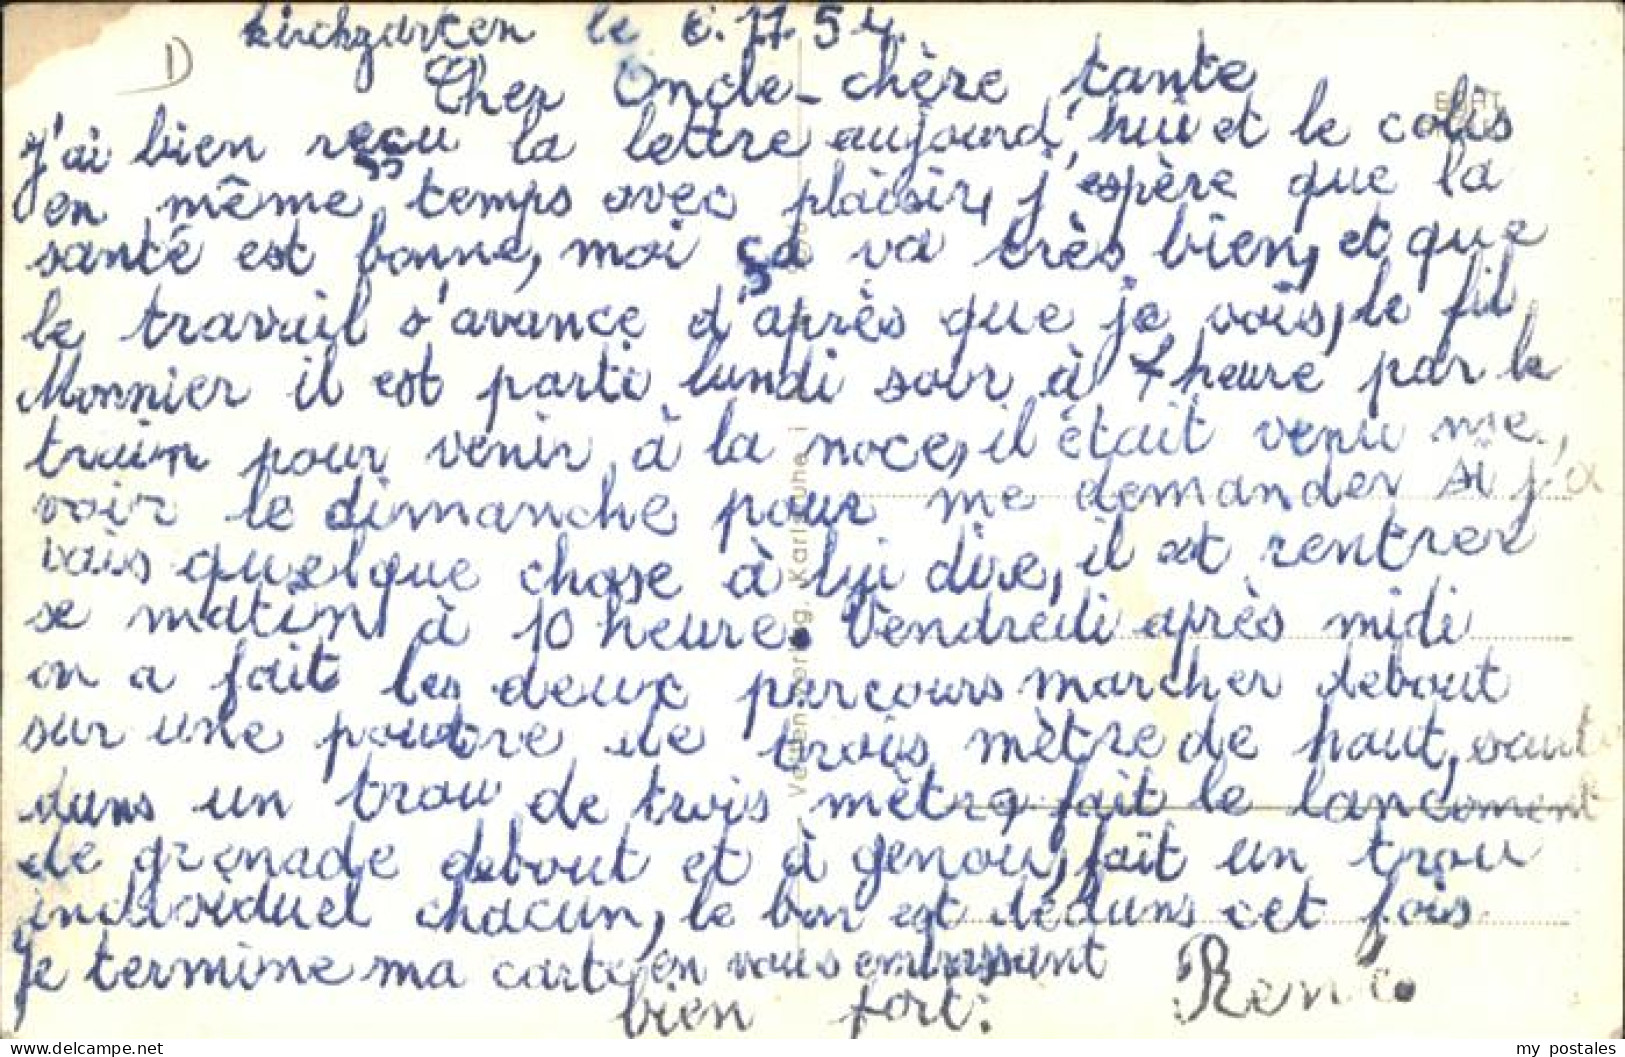 Kirchzarten le 6.11.54.
D
Cher Oncle - chère tante
j'ai bien reçu la lettre aujourd'hui et le colis
en même temps avec plaisir, j'espère que la
santé est bonne, moi ça va très bien, et que
le travail s'avance d'après que je vois, le fil
Monnier il est parti lundi soir à 7 heure par le
train pour venir à la noce, il était venu me
voir le dimanche pour me demander si j'a
vais quelque chose à lui dire, il est rentrer
se matin à 10 heure. Vendredi après midi
on a fait les deux parcours marcher debout
sur une poudre de trois mètre de haut, saut
dans un trou de trois mètre, fait le lancement
de grenade debout et à genou, fait un trou
individuel chacun, le bon est dedans cet fois
Je termine ma carte en vous embrassant
bien fort: René
Verlag, Karlsruhe
my postales